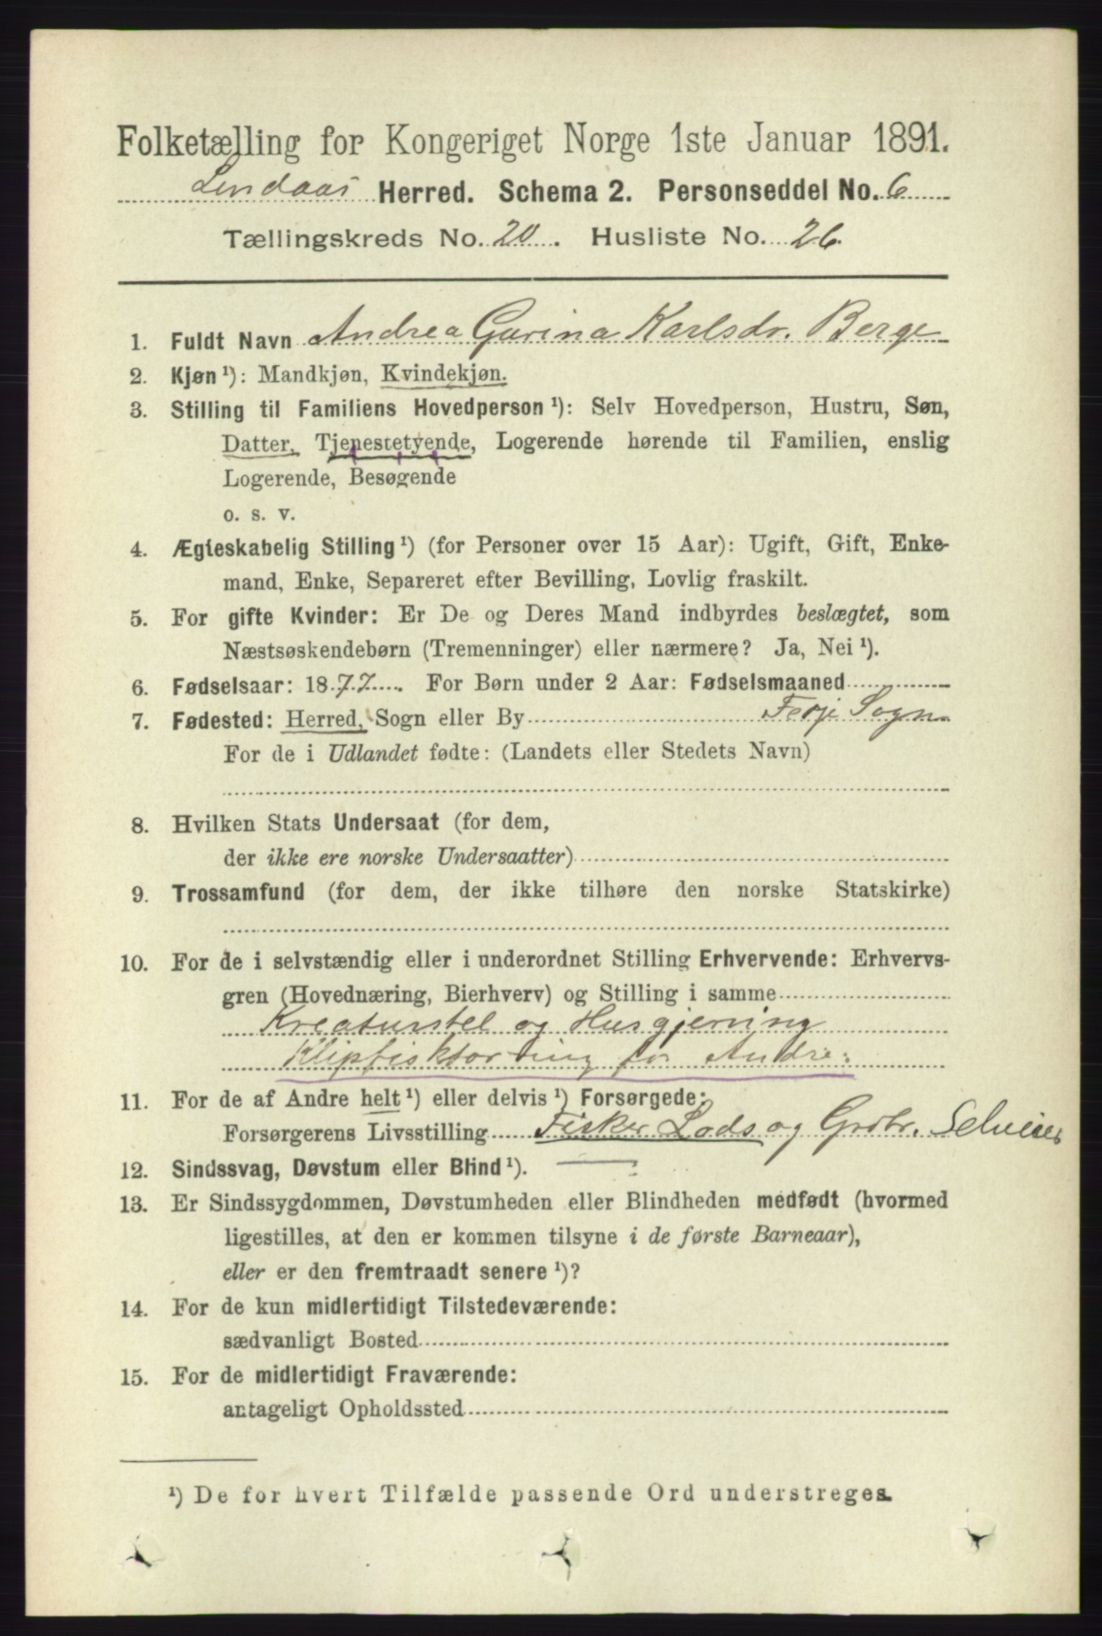 Folketælling for Kongeriget Norge 1ste Januar 1891.
Lindaas Herred. Schema 2. Personseddel No. 6
Tællingskreds No. 20. Husliste No. 26.
1. Fuldt Navn Andrea Gurina Karlsdr. Berge
2. Kjøn ¹): Mandkjøn, Kvindekjøn.
3. Stilling til Familiens Hovedperson ¹): Selv Hovedperson, Hustru, Søn,
Datter, Tjenestetyende, Logerende hørende til Familien, enslig
Logerende, Besøgende
o. s. v.
4. Ægteskabelig Stilling ¹) (for Personer over 15 Aar): Ugift, Gift, Enke-
mand, Enke, Separeret efter Bevilling, Lovlig fraskilt.
5. For gifte Kvinder: Er De og Deres Mand indbyrdes beslægtet, som
Næstsøskendebørn (Tremenninger) eller nærmere? Ja, Nei ¹).
6. Fødselsaar: 1877. For Børn under 2 Aar: Fødselsmaaned
7. Fødested: Herred, Sogn eller By Feoje Sogn
For de i Udlandet fødte: (Landets eller Stedets Navn)
8. Hvilken Stats Undersaat (for dem,
der ikke ere norske Undersaatter)
9. Trossamfund (for dem, der ikke tilhøre den norske Statskirke)
10. For de i selvstændig eller i underordnet Stilling Erhvervende: Erhvervs-
gren (Hovednæring, Bierhverv) og Stilling i samme
Kreaturstel og Husgjerning
Klipfisktørring for Andre:
11. For de af Andre helt ¹) eller delvis ¹) Forsørgede:
Forsørgerens Livsstilling Fisker Lods og Grdbr. Selveier
12. Sindssvag, Døvstum eller Blind ¹).
13. Er Sindssygdommen, Døvstumheden eller Blindheden medfødt (hvormed
ligestilles, at den er kommen tilsyne i de første Barneaar),
eller er den fremtraadt senere ¹)?
14. For de kun midlertidigt Tilstedeværende:
sædvanligt Bosted
15. For de midlertidigt Fraværende:
antageligt Opholdssted
¹) De for hvert Tilfælde passende Ord understreges.